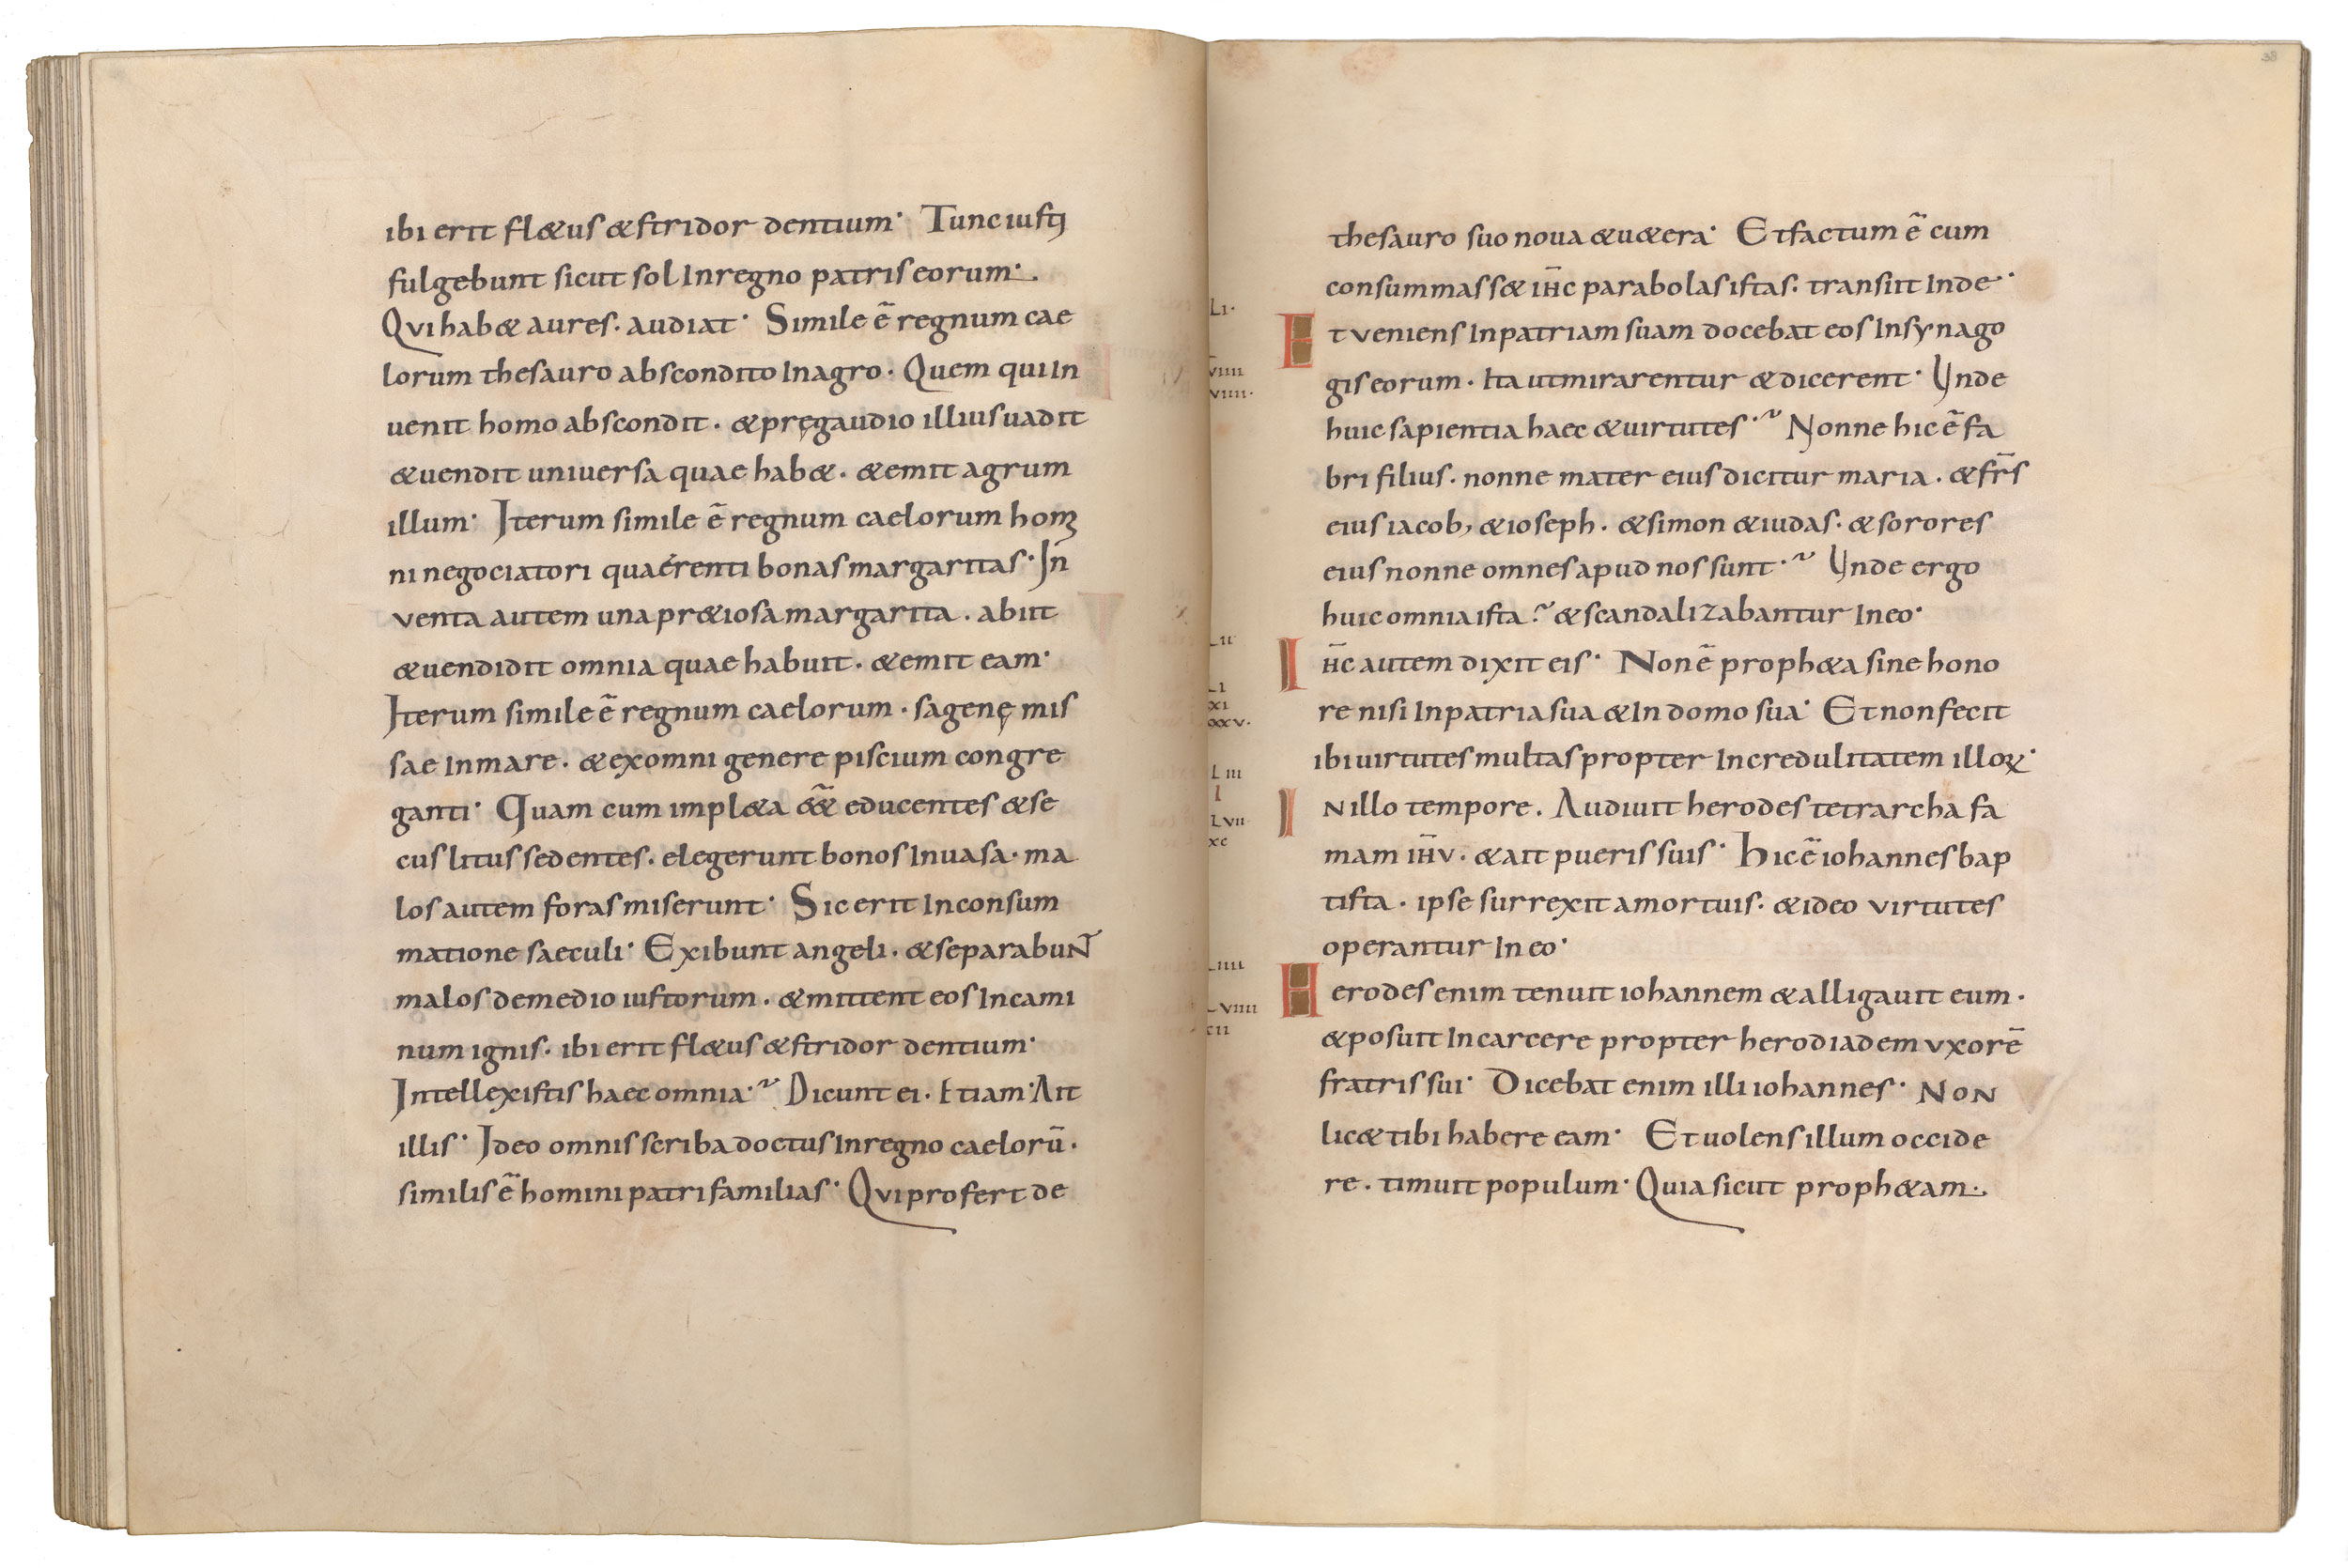 ibi erit fl&us & stridor dentium· Tunc iusti
fulgebunt sicut sol In regno patris eorum·.
Qui hab& aures· audiat· Simile ē regnum cae
lorum thesauro abscondito In agro· Quem qui In
uenit homo abscondit· & pręgaudio illius uadit
& uendit uniuersa quae hab&· & emit agrum
illum· Iterum simile ē regnum caelorum homi
ni negociatori quaérenti bonas margaritas· In
venta autem una pr&iosa margarita· abiit
& uendidit omnia quae habuit· & emit eam·
Iterum simile ē regnum caelorum· sagenę mis
sae In mare· & ex omni genere piscium congre
ganti· Quam cum impl&a ēē& educentes & se
cus litus sedentes· elegerunt bonos In uasa· ma
los autem foras miserunt· Sic erit In consum
matione saeculi· Exibunt angeli· & separabuNT
malos de medio iustorum· & mittent eos In cami
num ignis· ibi erit fl&us & stridor dentium·
Intellexistis haec omnia·~ Dicunt ei· Etiam· Ait
illis· Ideo omnis scriba doctus In regno caelorū·
similis ē homini patri familias· Qui profert de
38
thesauro suo noua & u&era· Et factum ē cum
consummass& ıħc parabolas istas· transiit Inde··
LI·
Et veniens In patriam suam docebat eos In synago
VIIII
gis eorum· Ita ut mirarentur & dicerent· Unde
VIIII·
huic sapientia haec & uirtutes·~ Nonne hic ē fa
bri filius· nonne mater eius dicitur maria· & fr̄s
eius iacob, & ioseph· & simon & iudas· & sorores
eius nonne omnes apud nos sunt·~ Unde ergo
huic omnia ista·~ & scandalizabantur In eo·
LII
Iħc autem dixit eis· Non ē proph&a sine hono
LI
XI
re nisi In patria sua & In domo sua· Et non fecit
XXV·
ibi uirtutes multas propter Incredulitatem illoꝝ·
LIII
I
IN illo tempore· Audiuit herodes tetrarcha fa
LVII
XC
mam ıħv· & ait pueris suis· Hic ē iohannes bap
tista· ipse surrexit a mortuis· & ideo virtutes
operantur In eo·
LIIII
Herodes enim tenuit iohannem & alligauit eum·
LVIIII
CII
& posuit In carcere propter herodiadem vxorē
fratris sui· Dicebat enim illi iohannes· NON
lic& tibi habere eam· Et uolens illum occide
re· timuit populum· Quia sicut proph&am·.